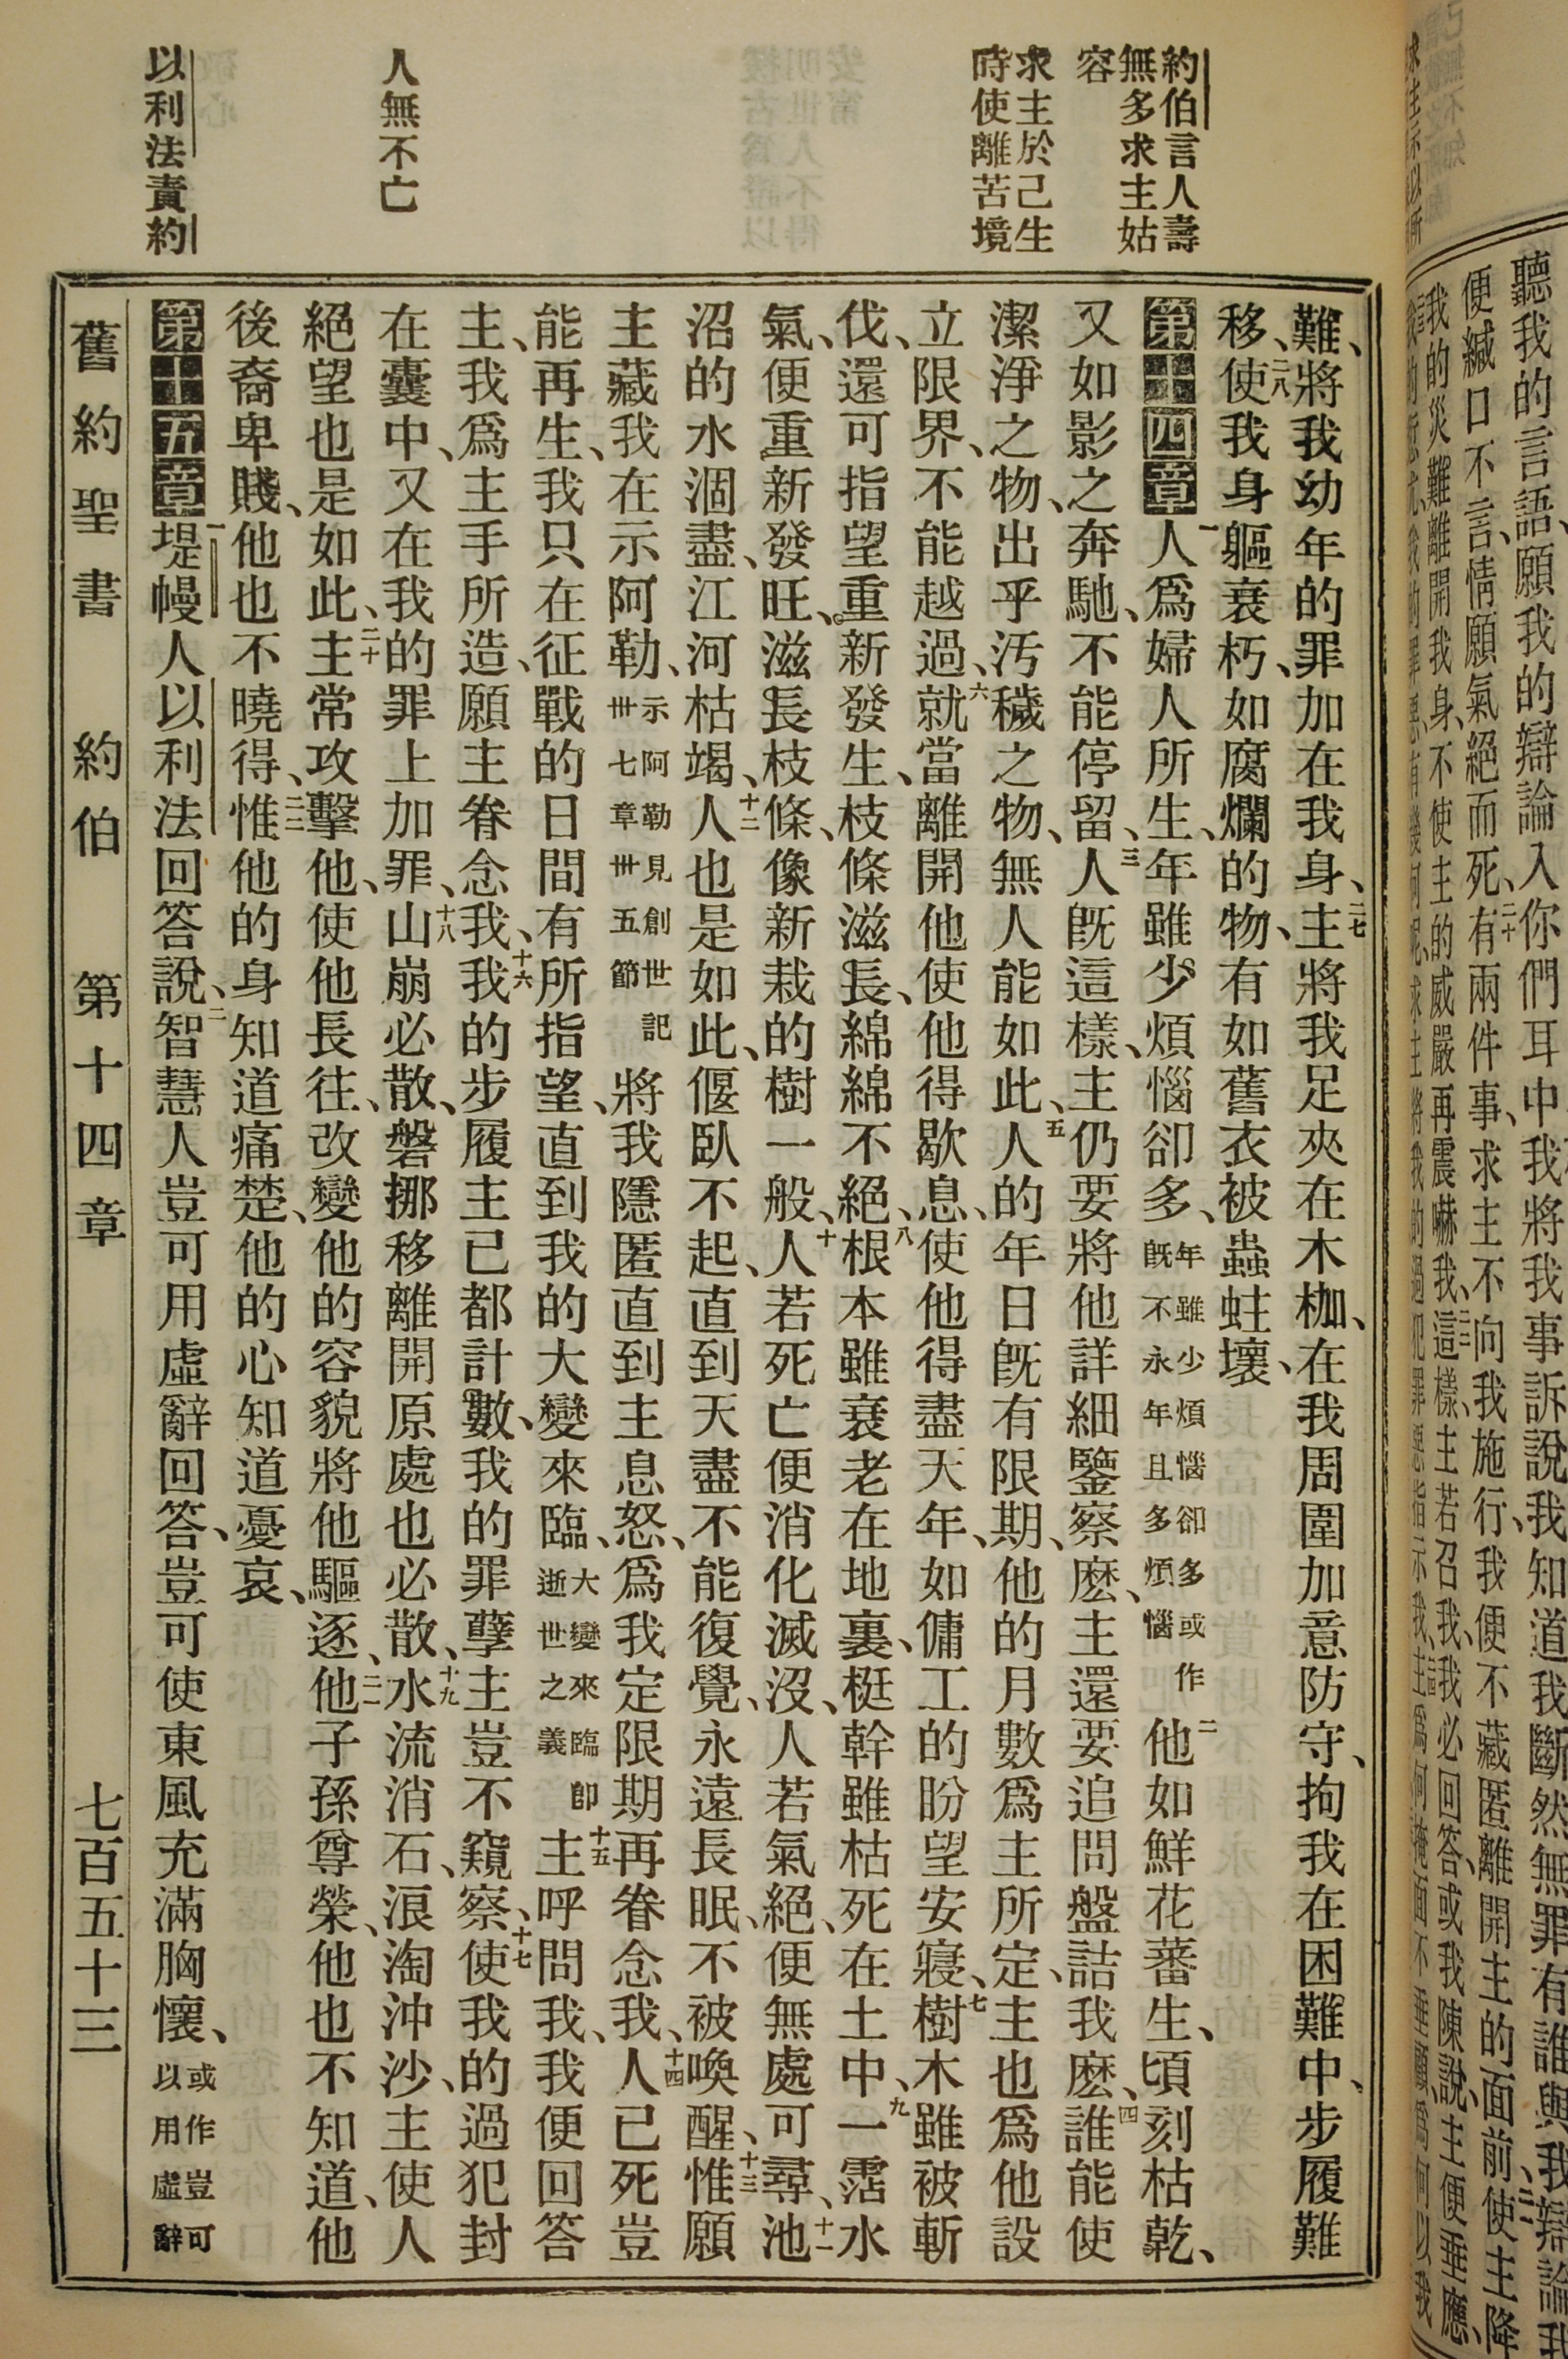 約伯言人壽
無多求主姑
容
求主於己生
時使離苦境
人無不亡
以利法責約
難、將我幼年的罪加在我身、二七主將我足夾在木枷、在我周圍加意防守、拘我在困難中、步履難
移、二八使我身軀衰朽、如腐爛的物、有如舊衣被蟲蛀壞、
第十四章 一人爲婦人所生、年雖少煩惱卻多、年雖少煩惱卻多或作旣不永年且多煩惱二他如鮮花蕃生、頃刻枯乾、
又如影之奔馳、不能停留、三人旣這樣、主仍要將他詳細鑒察麽、主還要追問盤詰我麽、四誰能使
潔淨之物、出乎汚穢之物、無人能如此、五人的年日旣有限期、他的月數爲主所定、主也爲他設
立限界、不能越過、六就當離開他使他得歇息、使他得盡天年、如傭工的盼望安寢、七樹木雖被斬
伐、還可指望重新發生、枝條滋長、綿綿不絕、八根本雖衰老在地裏、梃幹雖枯死在土中、九一霑水
氣、便重新發旺、滋長枝條、像新栽的樹一般、十人若死亡便消化滅沒、人若氣絕、便無處可尋、十一池
沼的水涸盡、江河枯竭、十二人也是如此、偃臥不起、直到天盡不能復覺、永遠長眠、不被喚醒、十三惟願
主藏我在示阿勒、示阿勒見創世記卅七章卅五節將我隱匿直到主息怒、爲我定限期再眷念我、十四人已死豈
能再生、我只在征戰的日間有所指望、直到我的大變來臨、大變來臨卽逝世之義十五主呼問我、我便回答
主、我爲主手所造、願主眷念我、十六我的步履主已都計數、我的罪孽主豈不窺察、十七使我的過犯封
在囊中、又在我的罪上加罪、十八山崩必散、磐挪移離開原處也必散、十九水流消石、浪淘沖沙、主使人
絕望也是如此、二十主常攻擊他、使他長往、改變他的容貌將他驅逐、二一他子孫尊榮、他也不知道、他
後裔卑賤、他也不曉得、二二惟他的身知道痛楚、他的心知道憂哀、
第十五章 一堤幔人以利法回答說、二智慧人豈可用虛辭回答、豈可使東風充滿胸懷、或作豈可以用虛辭
舊約聖書 約伯 第十四章 七百五十三